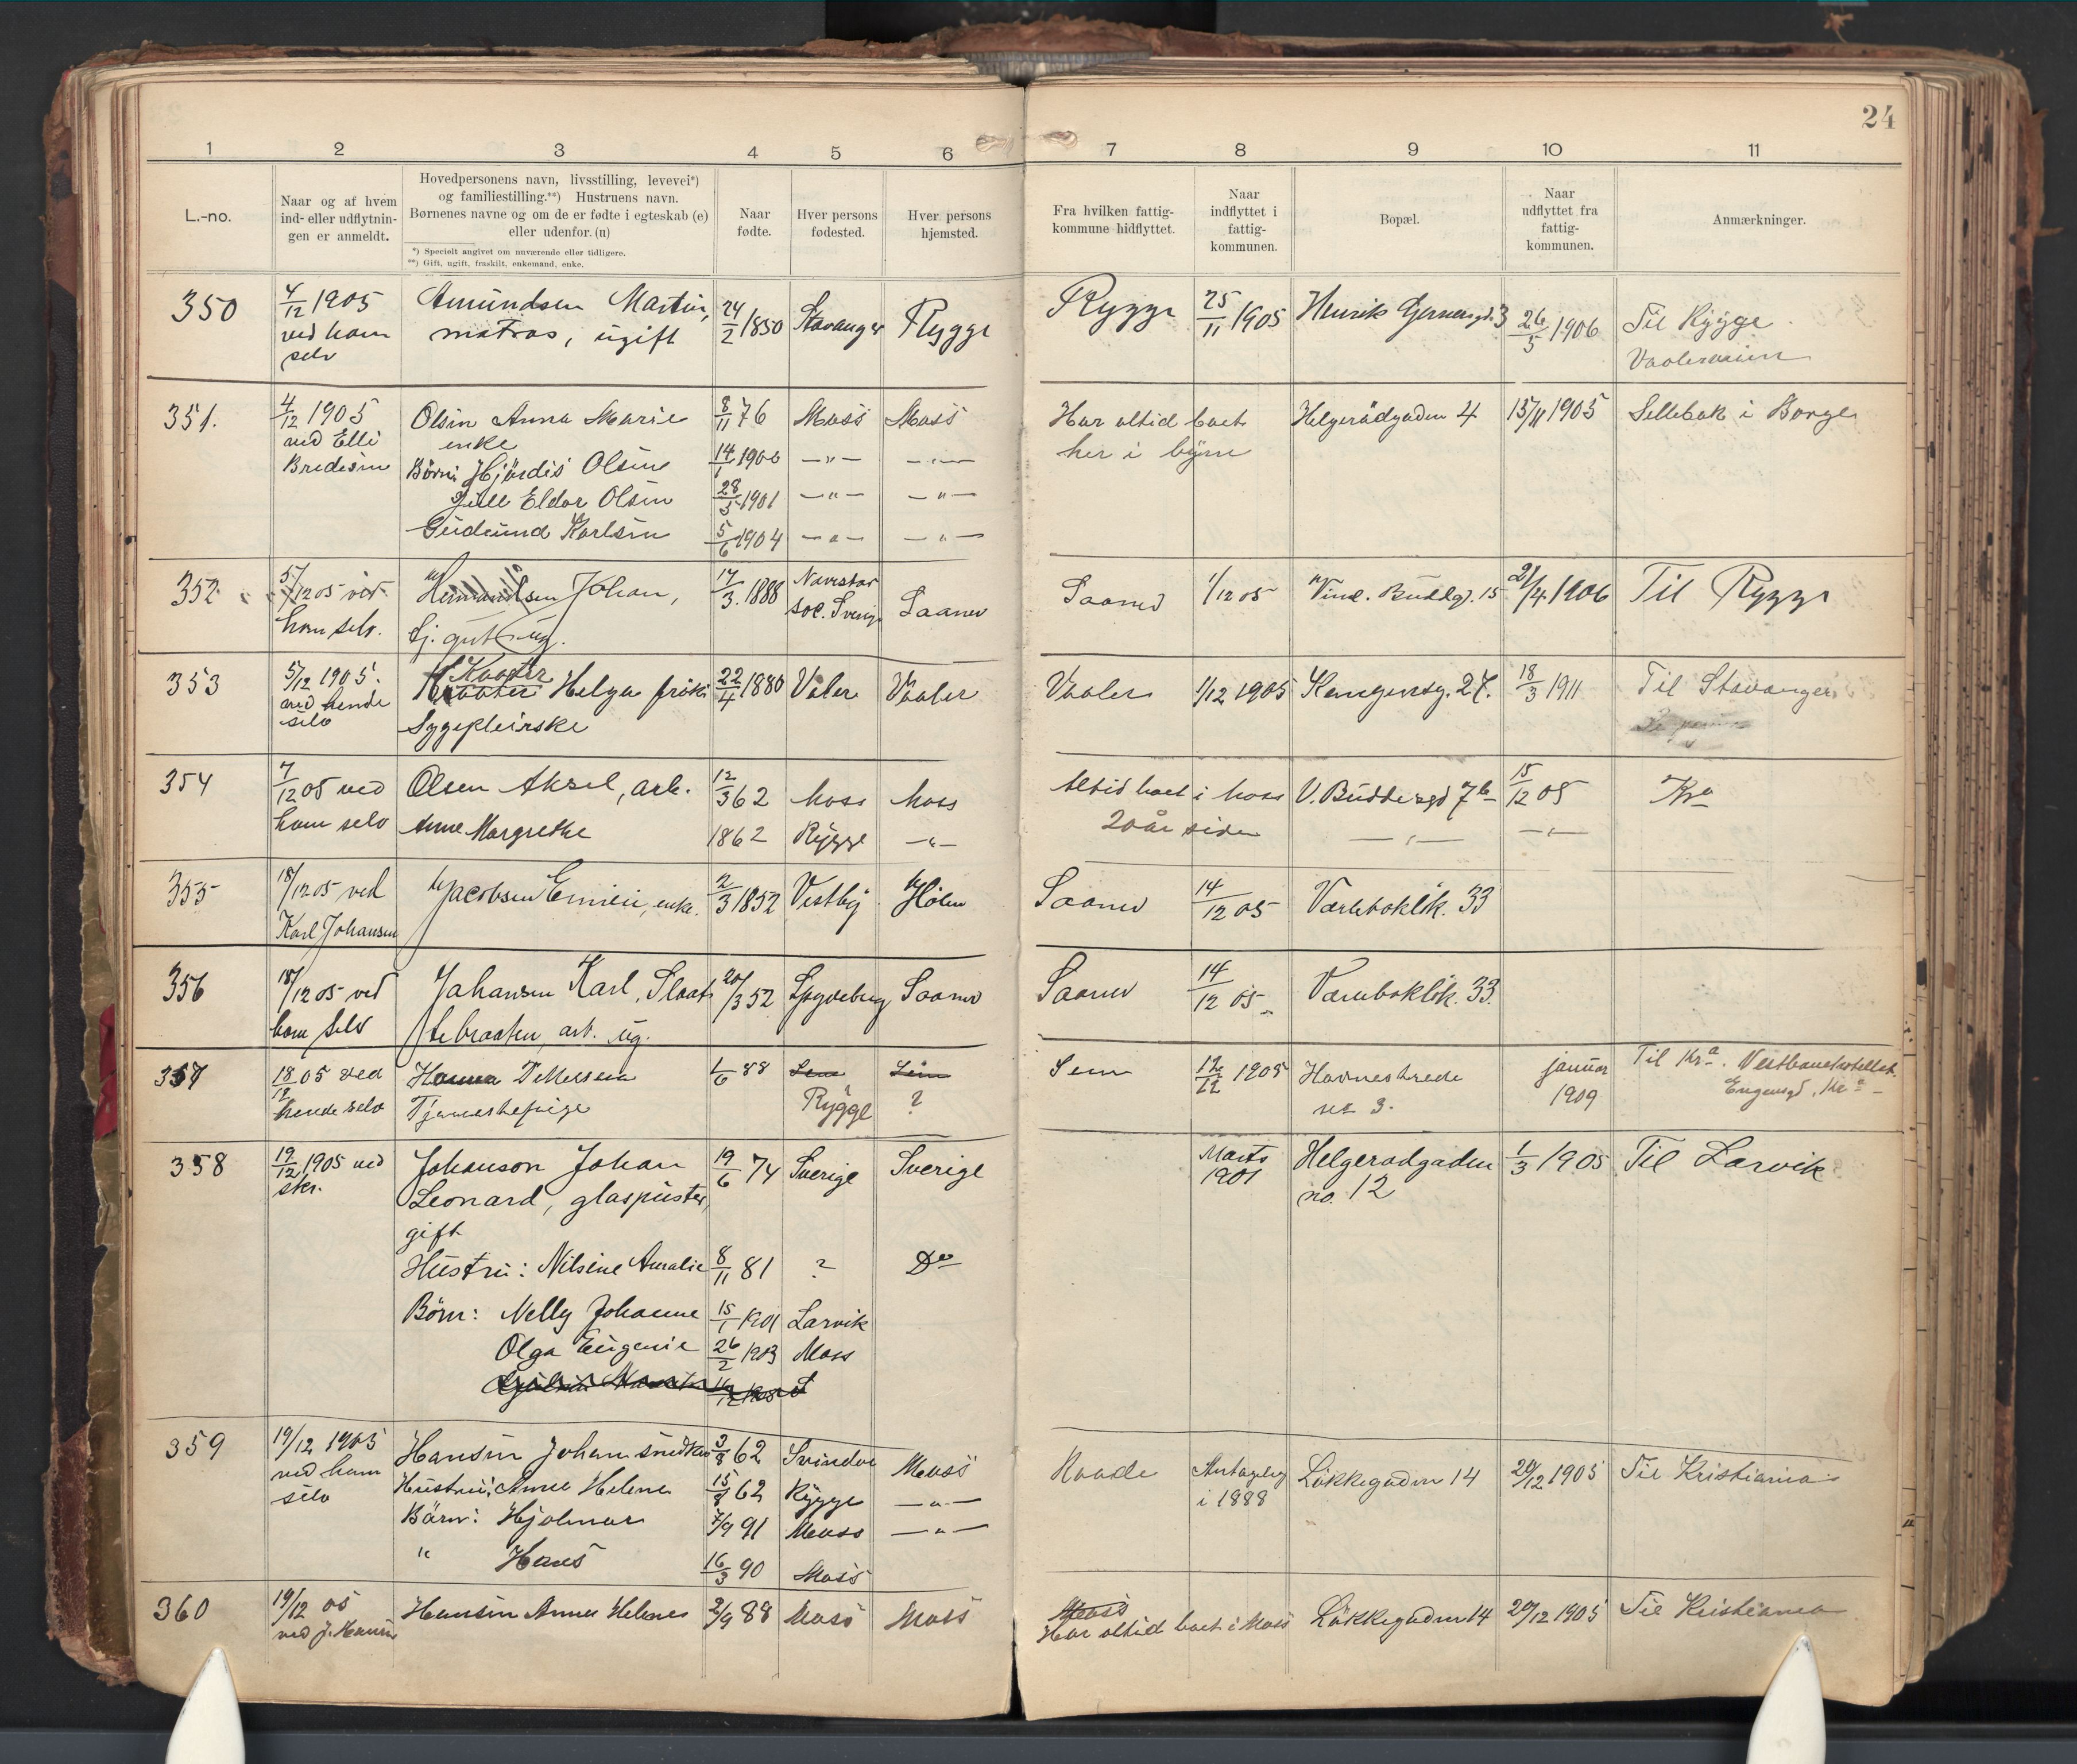 24
1 2 3 4 5 6 7 8 9 10 11
L.-no.
Naar og af hvem
ind- eller udflytnin-
gen er anmeldt.
Hovedpersonens navn, livsstilling, levevei*)
og familiestilling.**) Hustruens navn.
Børnenes navne og om de er fødte i egteskab (e)
eller udenfor. (u)
*) Specielt angivet om nuværende eller tidligere.
**) Gift, ugift, fraskilt, enkemand, enke.
Naar
fødte.
Hver persons
fødested.
Hver persons
hjemsted.
Fra hvilken fattig-
kommune hidflyttet.
Naar
indflyttet i
fattig-
kommunen.
Bopæl.
Naar
udflyttet fra
fattig-
kommunen.
Anmærkninger.
350 4/12 1905 Amundsen Martin, 24/2 1850 Stavanger Rygge Rygge 25/11 1905 Henrik Gernersgd. 3 26/5 1906 Til Rygge
ved ham matros, ugift Vaalerveien
selv
351. 4/12 1905 Olsen Anna Marie 8/11 76 Moss Moss Har altid boet Helgerødgaden 4 15/11 1905 Sellebak i Borge
ved Elli enke her i byen
Bredesen Børn: Hjördis Olsen 14/1 1900 — " — — " —
Eldor Olsen 28/5 1901 — " — — " —
Gudmund Karlsen 5/6 1904 — " — — " —
352 5/12 05 ved Hermansen Johan, 17/3. 1888 Saaner Saaner 1/12 05 Vinc. Buddgd. 15 21/4 1906 Til Rygge
ham selv. tj. gut ug. soc. Sverige
353 5/12 1905. Kaater Helga frøk. 22/4 1880 Vaaler Vaaler Vaaler 1/12 1905 Kongensg. 27. 18/3 1911 Til Stavanger
ved hende Sygepleirske
selv
354 7/12 05 ved Olsen Aksel, arb. 12/3 62 Moss Moss Altid boet i Moss V. Buddesgd 7b 15/12 05 Kra
ham selv Anne Margrethe 1862 Rygge — " — 20 år siden — " — — " —
355 18/12 05 ved Jacobsen Emilie, enke. 2/3 1852 Vestby Hölen Saaner 14/12 05 Varlebaklök. 33
Karl Johansen
356 18/12 05 ved Johansen Karl, Slaat- 20/3 52 Spydeberg Saaner Saaner 14/12 05 Varlebaklök. 33.
ham selv tebraaten, arb. ug.
357 18/12 05 ved Hanna Dellessen 1/6 88 Sem Sem Sem 12/12 1905 Havnestrede januar Til Kra. Vestbanehotellet.
hende selv Tjenestepige Rygge ? no 3. 1909 Engensgd, Kra
358 19/12 1905 ved Johanson Johan 19/6 74 Sverige Sverige Marts Helgerødgaden 1/3 1905 Til Larvik
skr. Leonard, glaspuster, 1901 no. 12
gift
Hustru: Nilsine Amalie 8/11 81 ? Do
Børn: Nelly Johanne 15/1 1901 Larvik
Olga Eugenie 26/2 1903 Moss
359 19/12 1905 Hansen Johan snedker 3/8 62 Svindal Moss Raade Antagelig Løkkegaden 14 20/12 1905 Til Kristiania
ved ham Hustru: Anna Helene 15/8 62 Rygge — " — i 1888
selv Børn: Hjalmar 7/9 91 Moss — " —
" Hans 16/3 90 Moss
360 19/12 05 Hansen Anna Helene 2/9 88 Moss Moss Moss Løkkegaden 14 20/12 1905 Til Kristiania
ved J. Hansen Har altid boet i Moss